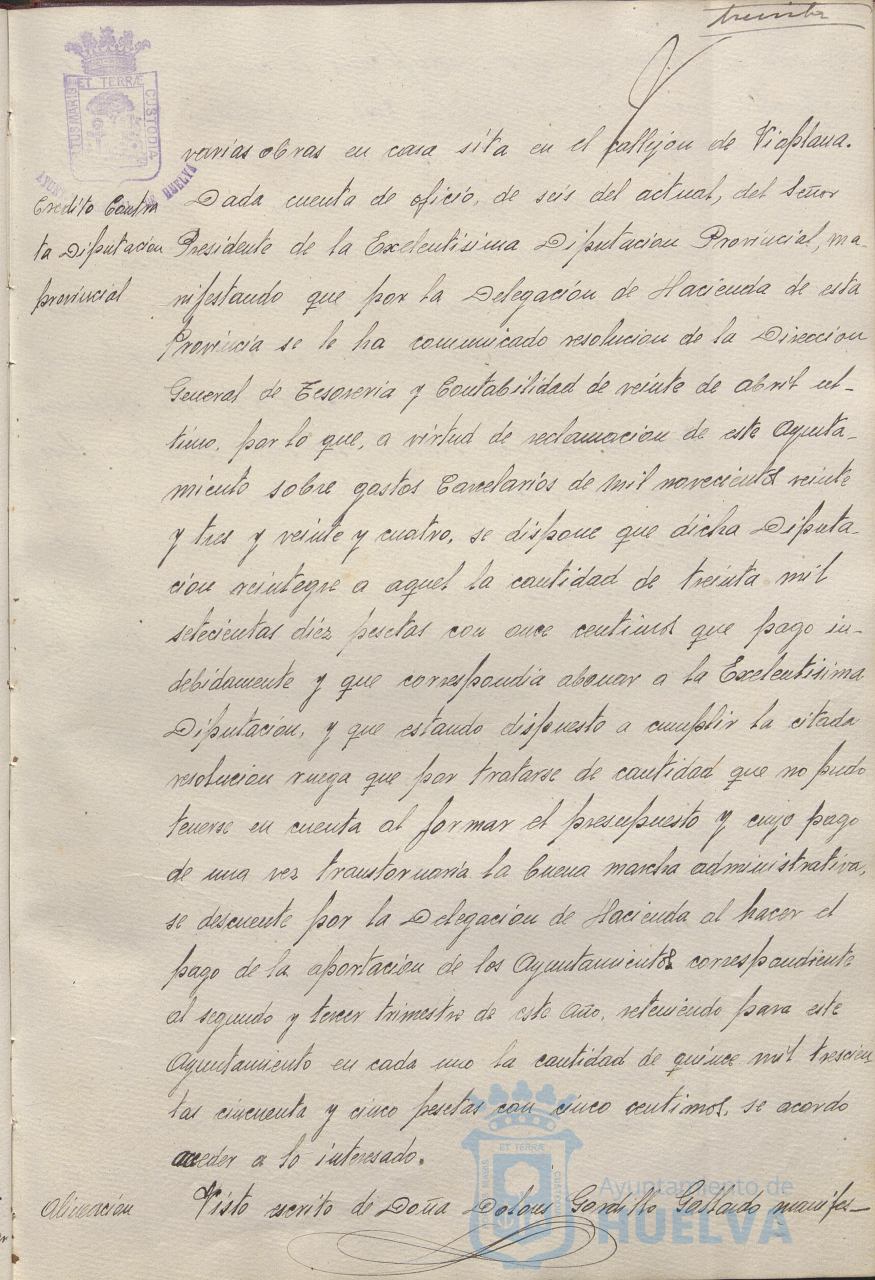 treinta
varias obras en casa sita en el callejon de Viaplana.
Credito Contra
ta Diputación
provincial
Dada cuenta de oficio, de seis del actual, del Señor
Presidente de la Exelentísima Diputacion Provincial, ma-
nifestando que por la Delegación de Hacienda de esta
Provincia se le ha comunicado resolucion de la Direccion
General de Tesoreria y Contabilidad de veinte de abril ul-
timo, por lo que, a virtud de reclamacion de este Ayunta-
miento sobre gastos Carcelarios de mil novecientos veinte
y tres y veinte y cuatro, se dispone que dicha Diputa-
ción reintegre a aquel la cantidad de treinta mil
setecientas diez pesetas con once centimos que pago in-
debidamente y que correspondia abonar a la Exelentisima
Diputación, y que estando dispuesto a cumplir la citada
resolucion ruega que por tratarse de cantidad que no pudo
tenerse en cuenta al formar el presupuesto y cuyo pago
de una vez transtornaria la buena marcha administrativa,
se descuente por la Delegación de Hacienda al hacer el
pago de la aportación de los Ayuntamientos correspondiente
al segundo y tercer trimestre de este año, reteniendo para este
Ayuntamiento en cada uno la cantidad de quince mil trescien
tas cincuenta y cinco pesetas con cinco centimos, se acordo
acceder a lo interesado.
Alineación
Visto escrito de Doña Dolores Gordillo Gallardo manifes-
ET TERRÆ
CUSTODIA
HUELVA
Ayuntamiento de
HUELVA